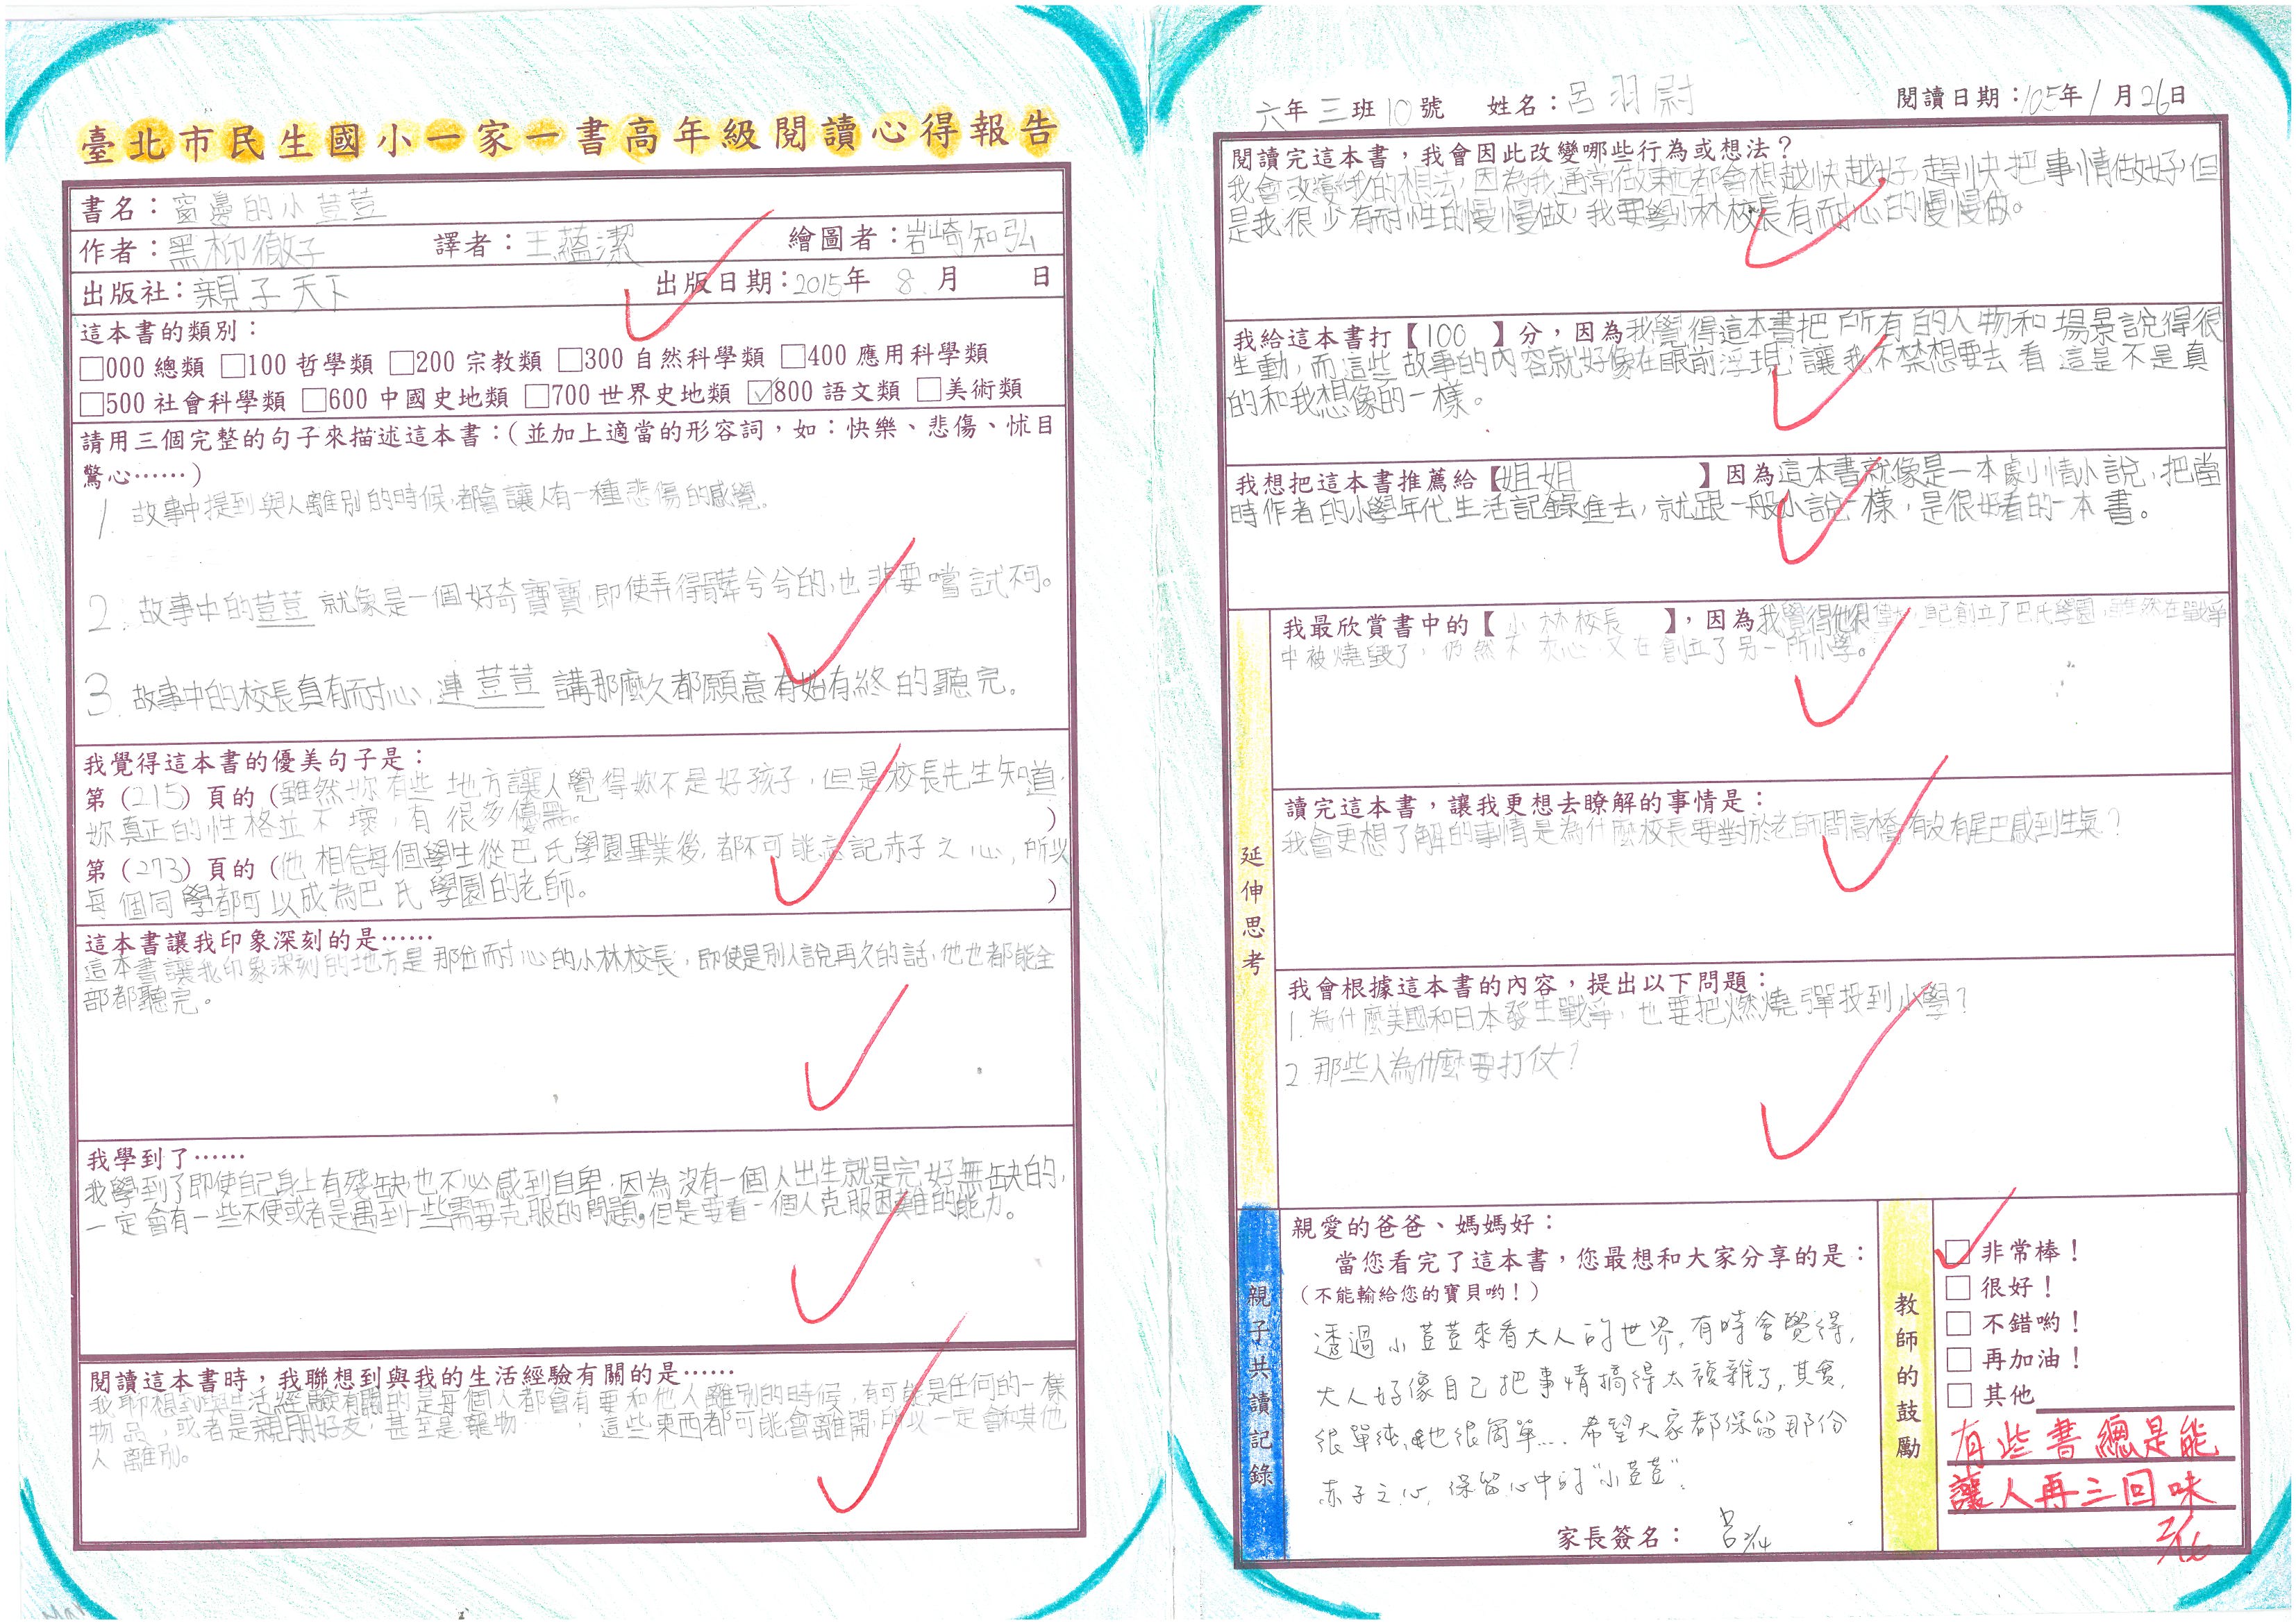 臺北市民生國小一家一書高年級閱讀心得報告
書名：窗邊的小荳荳
作者：黑柳徹子 譯者：王蘊潔 繪圖者：岩崎知弘
出版社：親子天下 出版日期：2015年 8 月 日
這本書的類別：
□000 總類 □100 哲學類 □200 宗教類 □300 自然科學類 □400 應用科學類
□500 社會科學類 □600 中國史地類 □700 世界史地類 ☑800 語文類 □美術類
請用三個完整的句子來描述這本書：（並加上適當的形容詞，如：快樂、悲傷、怵目
驚心……）
1. 故事中提到與人離別的時候，都會讓人有一種悲傷的感覺。
2. 故事中的荳荳就像是一個好奇寶寶，即使弄得髒兮兮的，也非要嚐試不可。
3. 故事中的校長真有耐心，連荳荳講那麼久都願意有始有終的聽完。
我覺得這本書的優美句子是：
第（215）頁的（雖然妳有些地方讓人覺得妳不是好孩子，但是校長先生知道，
妳真正的性格並不壞，有很多優點。）
第（273）頁的（他相信每個學生從巴氏學園畢業後，都不可能忘記赤子之心，所以
每個同學都可以成為巴氏學園的老師。）
這本書讓我印象深刻的是……
這本書讓我印象深刻的地方是那位耐心的小林校長，即使是別人說再久的話，他也都能全
部都聽完。
我學到了……
我學到了即使自己身上有殘缺也不必感到自卑，因為沒有一個人出生就是完好無缺的，
一定會有一些不便或者是遇到一些需要克服的問題。但是要看一個人克服困難的能力。
閱讀這本書時，我聯想到與我的生活經驗有關的是……
我聯想到與生活經驗有關的是每個人都會有要和他人離別的時候，有可能是任何的一樣
物品，或者是親朋好友，甚至是寵物……，這些東西都可能會離開，所以一定會和其他
人離別。
六年三班10號 姓名：呂羽尉 閱讀日期：105年1月26日
閱讀完這本書，我會因此改變哪些行為或想法？
我會改變我的想法，因為我通常做東西都會想越快越好，趕快把事情做好，但
是我很少有耐性的慢慢做，我要學小林校長有耐心的慢慢做。
我給這本書打【100 】分，因為我覺得這本書把所有的人物和場景說得很
生動，而這些故事的內容就好像在眼前浮現，讓我不禁想要去看這是不是真
的和我想像的一樣。
我想把這本書推薦給【姐姐 】因為這本書就像是一本劇情小說，把當
時作者的小學年代生活記錄進去，就跟一般小說一樣，是很好看的一本書。
延伸思考
我最欣賞書中的【小林校長】，因為我覺得他很 自己創立了巴氏學園，雖然在戰爭
中被燒毀了，仍然不灰心，又在創立了另一所小學。
讀完這本書，讓我更想去瞭解的事情是：
我會更想了解的事情是為什麼校長要對於老師問高橋有沒有尾巴感到生氣？
我會根據這本書的內容，提出以下問題：
1. 為什麼美國和日本發生戰爭，也要把燃燒彈投到小學？
2. 那些人為什麼要打仗？
親子共讀記錄
親愛的爸爸、媽媽好：
當您看完了這本書，您最想和大家分享的是：
（不能輸給您的寶貝喲！）
透過小荳荳來看大人的世界，有時會覺得，
大人好像自己把事情搞得太複雜了，其實，
很單純、也很簡單…. 希望大家都保留那份
赤子之心，保留心中的"小荳荳"。
家長簽名：呂 2/14
教師的鼓勵
□ 非常棒！
□ 很好！
□ 不錯喲！
□ 再加油！
□ 其他
有些書總是能
讓人再三回味
2/16